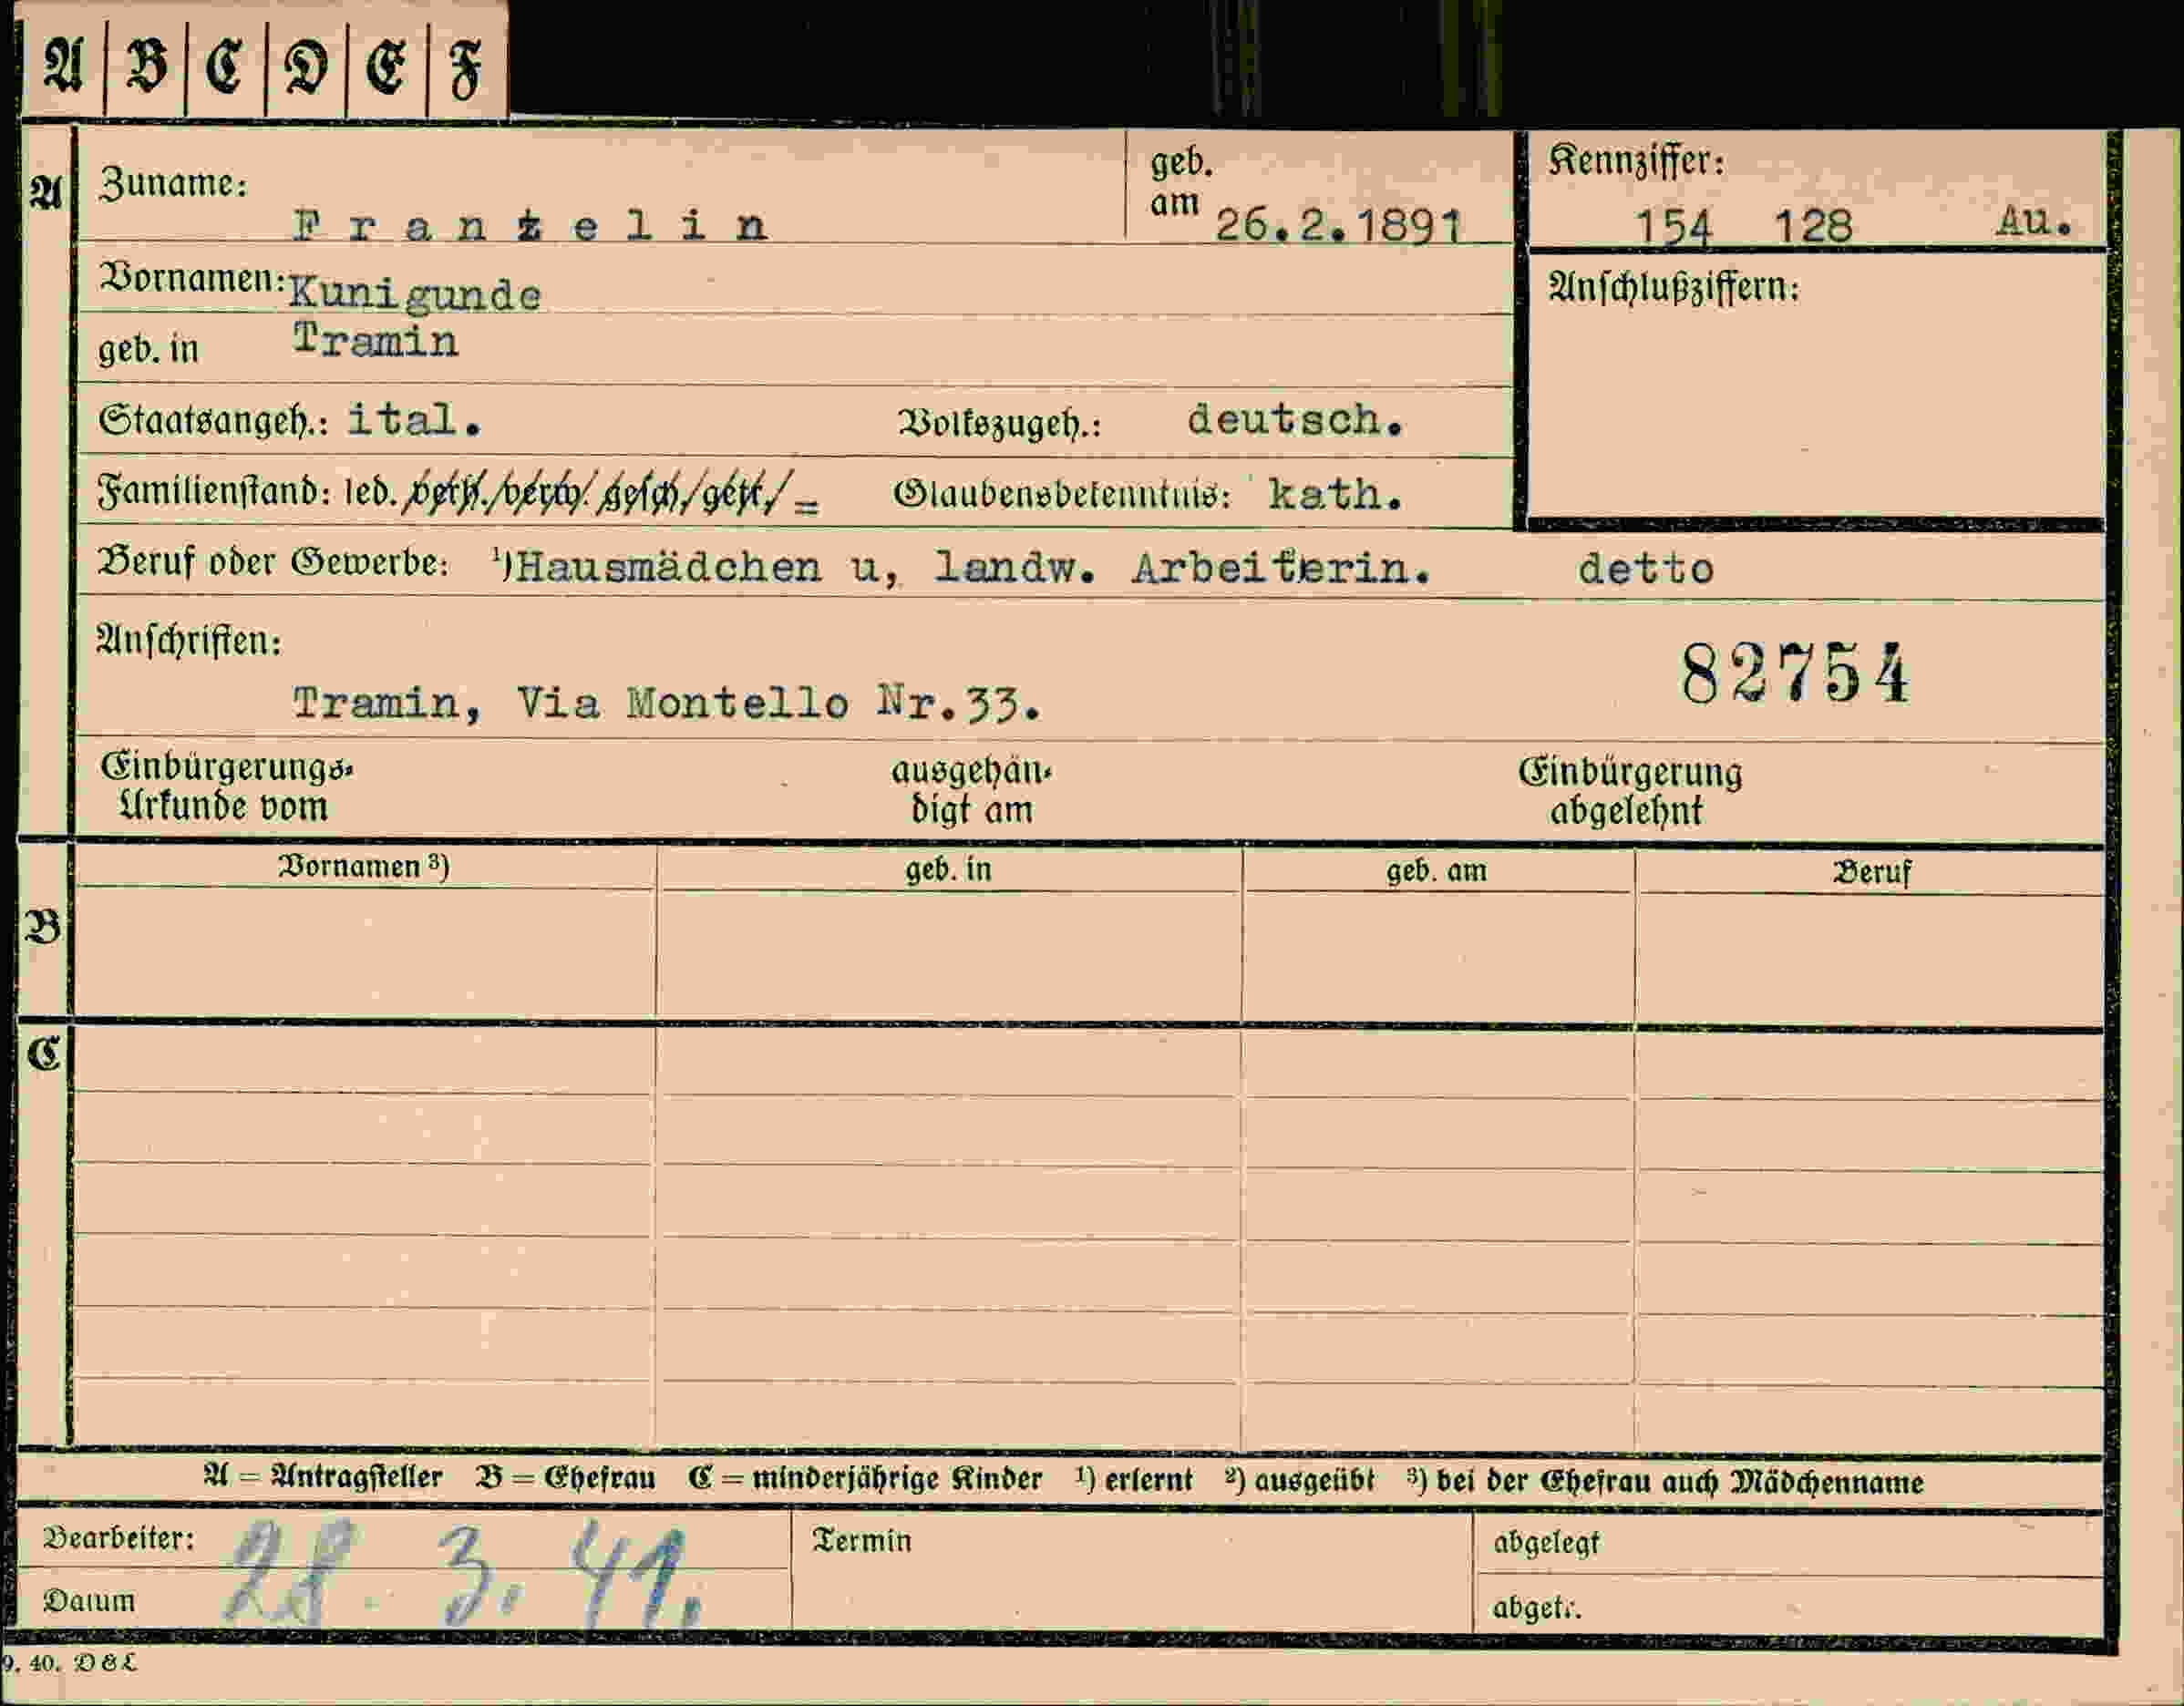 A B C D E F
A Zuname: Franzelin geb. am 26.2.1891 Kennziffer: 154 128 Au.
Vornamen: Kunigunde Anschlußziffern:
geb. in Tramin
Staatsangeh.: ital. Volkszugeh.: deutsch.
Familienstand: led. verh./verw./gesch./getr./= Glaubensbekenntnis: kath.
Beruf oder Gewerbe: ¹)Hausmädchen u, landw. Arbeiterin. detto
Anschriften: 82754
Tramin, Via Montello Nr.33.
Einbürgerungs- ausgehän- Einbürgerung
Urkunde vom digt am abgelehnt
Vornamen ³) geb. in geb. am Beruf
B
C
A = Antragsteller B = Ehefrau C = minderjährige Kinder ¹) erlernt ²) ausgeübt ³) bei der Ehefrau auch Mädchenname
Bearbeiter: Termin abgelegt
Datum 28. 3. 41. abgetr.
9. 40. D&L